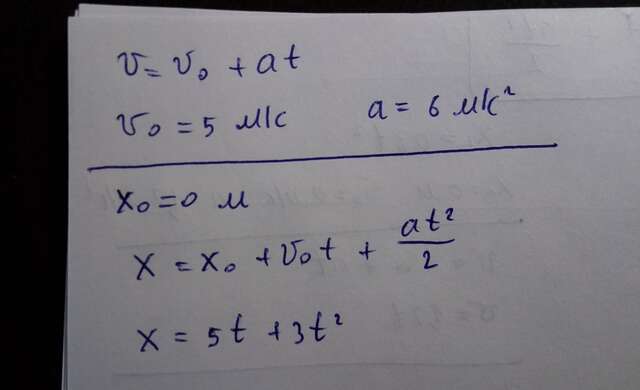 v = v₀ + at
v₀ = 5 м/с a = 6 м/с²
x₀ = 0 м
x = x₀ + v₀t + at²/2
x = 5t + 3t²